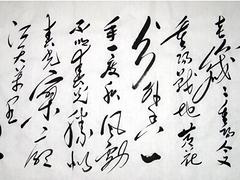 老歲〻重陽今又
重陽戰地黃花
分外香一
年一度秋風勁
不似春光勝似
春光寥廓
江天萬里